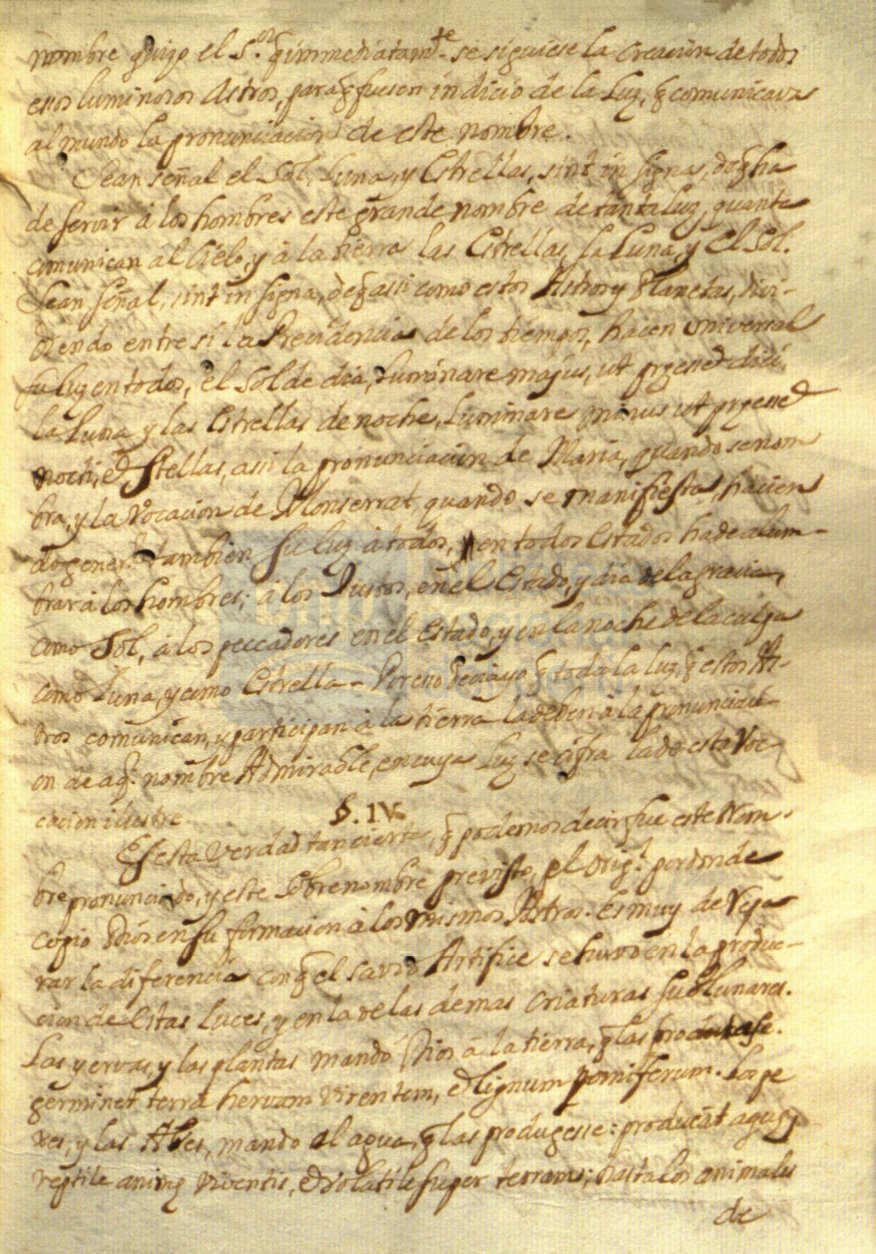 nombre quizo el S.or q̃ immediatam.te se siguiese la Creacion de todos
esos luminosos Astros, para q̃ fuesen indicio de la Luz, q̃ comunicava
al mundo la pronunciacion de este nombre.
Sean señal el Sol, Luna, y Estrellas, sint in signa, de q̃ ha
de servir á los hombres este grande nombre de tanta luz, quanta
comunican al Cielo, y á la tierra las Estrellas, la Luna, y el Sol.
Sean señal, sint in signa, de q̃ assi como estos Astros y Planetas, divi-
diendo entre si la Precidencia de los tiempos, hacen universal
su luz en todos, el Sol de dia, Luminare majus, ut præesset diei,
la Luna y las Estrellas de noche, Luminare minus ut præesset
nocti, et Stellas, assi la pronunciacion de Maria, quando se nom
bra, y la Vocacion de Monserrat, quando se manifiesta, hacien
do gener.l tambien su luz á todos, en todos Estados ha de alum-
brar á los hombres; á los Justos, en el Estado, y dia de la gracia,
como Sol, á los peccadores en el Estado, y en la noche de la culpa
como Luna, y como Estrella. Por eso decia yo q̃ toda la luz, q̃ estos As-
tros comunican, y participan á la tierra la deven á la pronunciaci-
on de aq.l nombre Admirable, en cuya Luz se cifra la de esta Vo-
cacion ilustre.
§. IV.
Es esta verdad tan cierta, q̃ podemos decir fue este Nom-
bre pronunciado, y este Sobrenombre previsto, el orig.l por donde
copio Dios en su formacion á los mismos Astros. Es muy de repa
rar la diferencia con q̃ el savio Artifice se huvo en la produc-
cion de Estas luces, y en la de las demas Criaturas Sublunares.
Las yervas, y las plantas mandó Dios á la tierra, q̃ las produxese.
germinet terra hervam virentem, et lignum pomiferum. Los pe
xes, y las Aves, mando al agua, q̃ las produgesse: producãt aquæ
reptile animæ viventis, et volatile super terram; hasta los animales
de